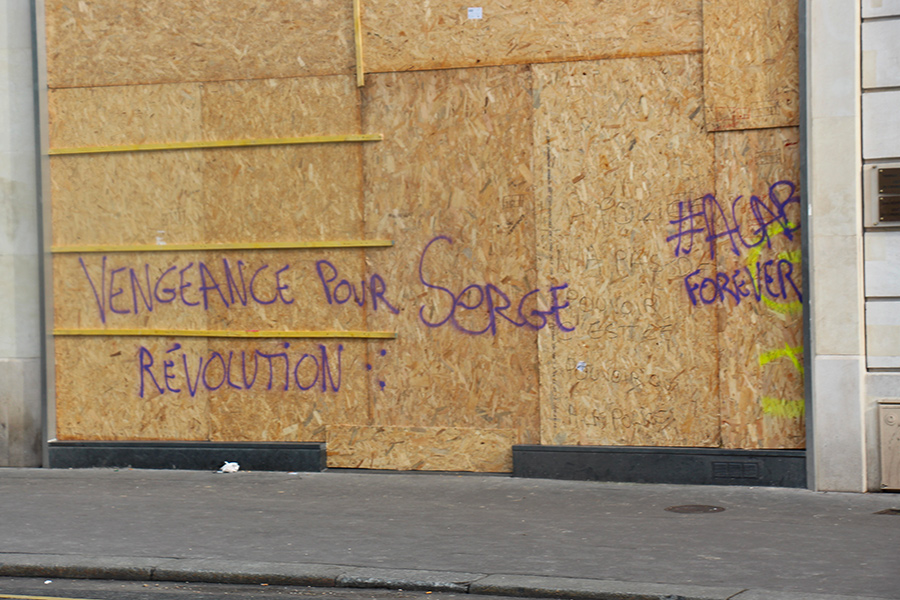 VENGEANCE POUR SERGE
RÉVOLUTION :
#ACAB
FOREVER